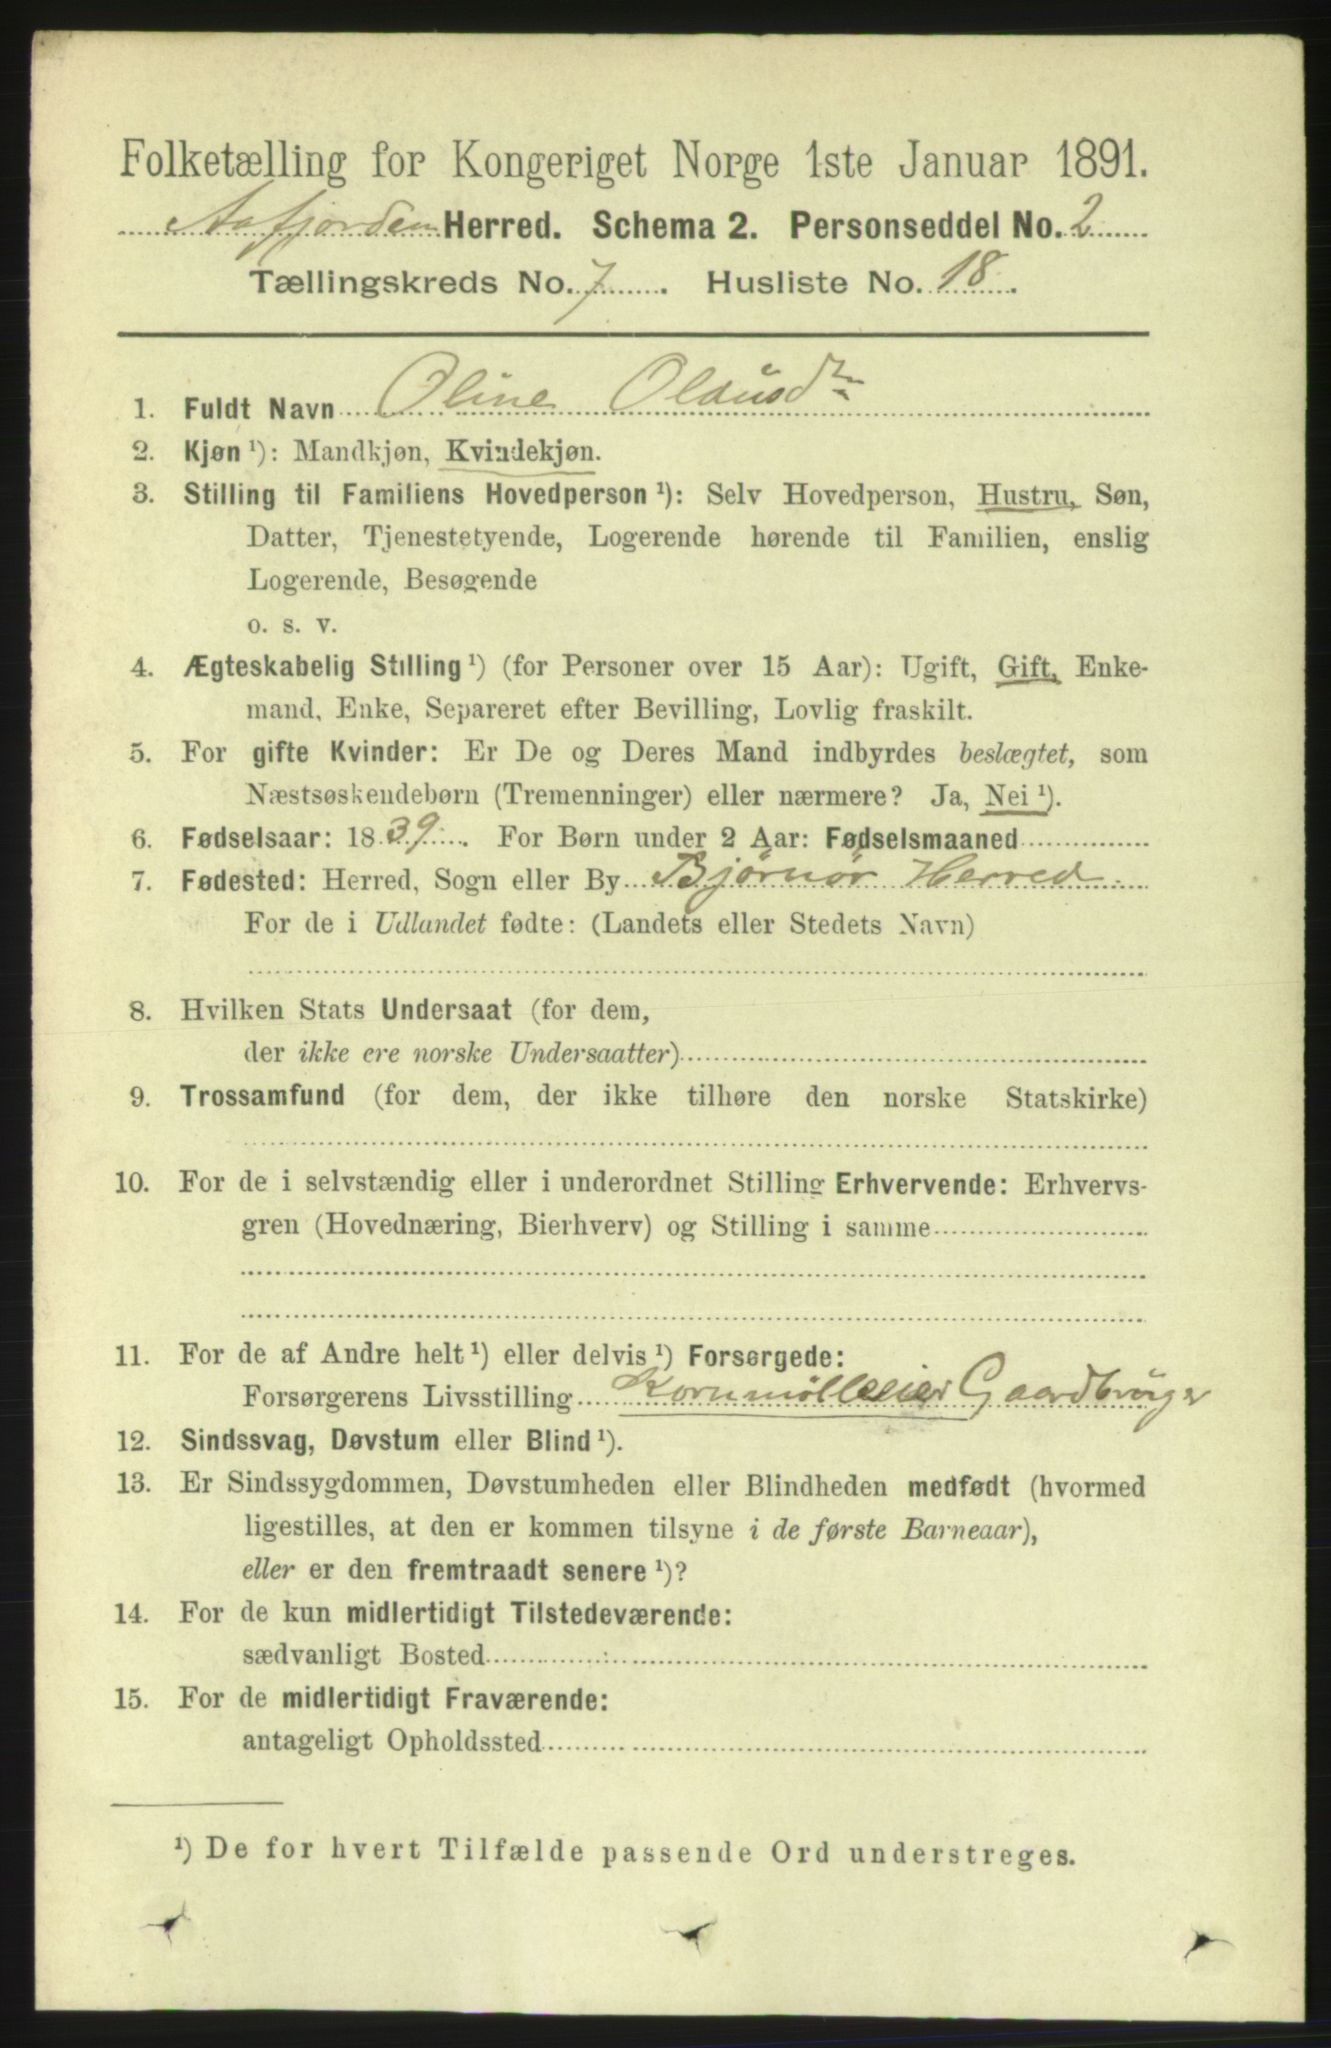 Folketælling for Kongeriget Norge 1ste Januar 1891.
Aafjorden Herred. Schema 2. Personseddel No. 2
Tællingskreds No. 7. Husliste No. 18.
1. Fuldt Navn Oline Olausdtr
2. Kjøn ¹): Mandkjøn, Kvindekjøn.
3. Stilling til Familiens Hovedperson ¹): Selv Hovedperson, Hustru, Søn,
Datter, Tjenestetyende, Logerende hørende til Familien, enslig
Logerende, Besøgende
o. s. v.
4. Ægteskabelig Stilling ¹) (for Personer over 15 Aar): Ugift, Gift, Enke-
mand, Enke, Separeret efter Bevilling, Lovlig fraskilt.
5. For gifte Kvinder: Er De og Deres Mand indbyrdes beslægtet, som
Næstsøskendebørn (Tremenninger) eller nærmere? Ja, Nei ¹).
6. Fødselsaar: 1839. For Børn under 2 Aar: Fødselsmaaned
7. Fødested: Herred, Sogn eller By Bjørnør Herred
For de i Udlandet fødte: (Landets eller Stedets Navn)
8. Hvilken Stats Undersaat (for dem,
der ikke ere norske Undersaatter)
9. Trossamfund (for dem, der ikke tilhøre den norske Statskirke)
10. For de i selvstændig eller i underordnet Stilling Erhvervende: Erhvervs-
gren (Hovednæring, Bierhverv) og Stilling i samme
11. For de af Andre helt ¹) eller delvis ¹) Forsørgede:
Forsørgerens Livsstilling Kornmølleeier Gaardbruger
12. Sindssvag, Døvstum eller Blind ¹).
13. Er Sindssygdommen, Døvstumheden eller Blindheden medfødt (hvormed
ligestilles, at den er kommen tilsyne i de første Barneaar),
eller er den fremtraadt senere ¹)?
14. For de kun midlertidigt Tilstedeværende:
sædvanligt Bosted
15. For de midlertidigt Fraværende:
antageligt Opholdssted
¹) De for hvert Tilfælde passende Ord understreges.